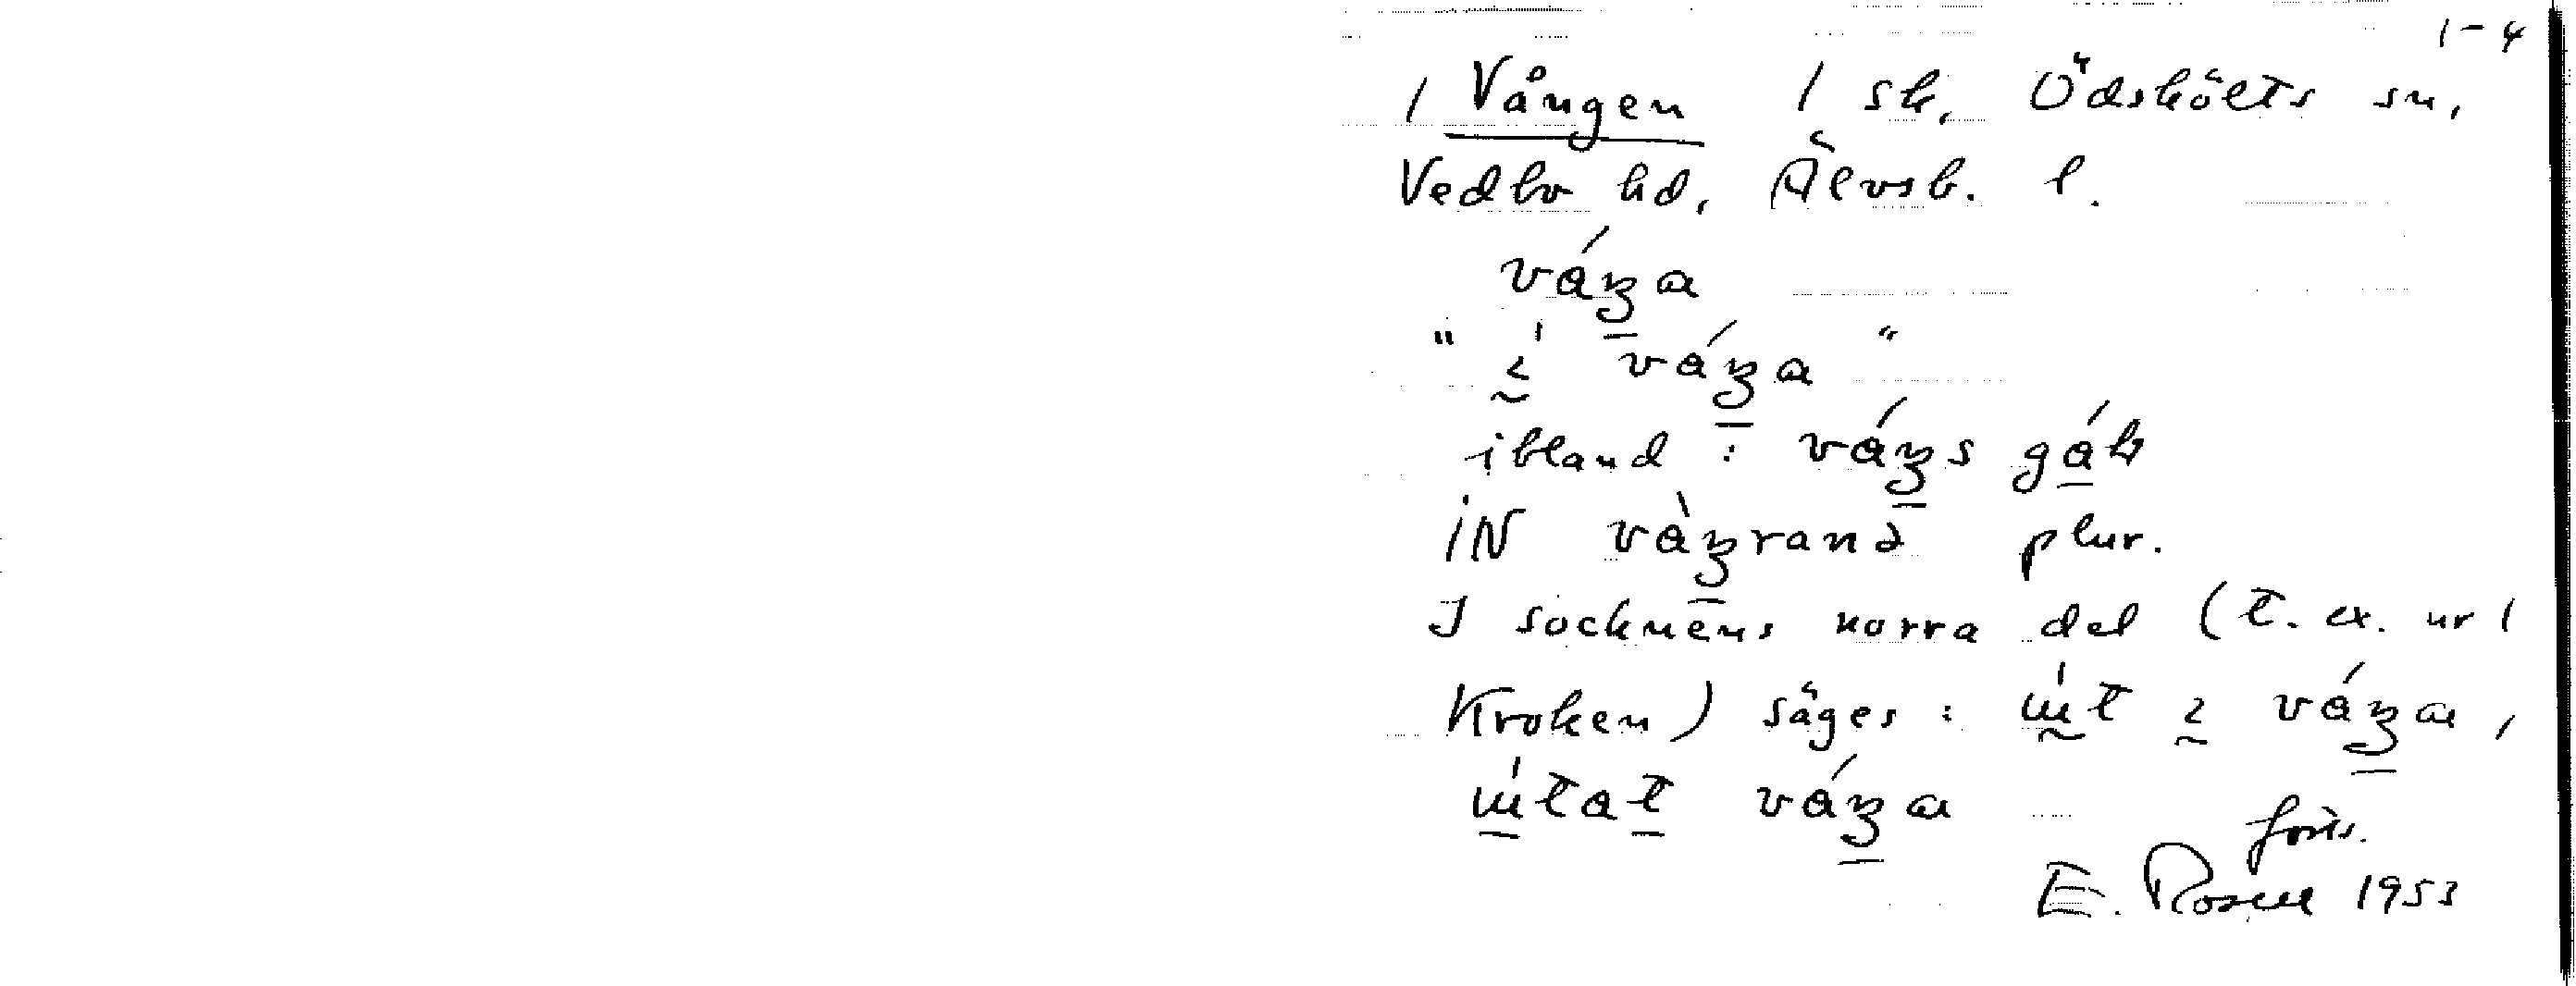 1-4
/ Vången / sk, Ödskölts sn,
Vedbo hd, Älvsb. l.
váŋa
"í váŋa"
ibland: váŋs gáb
iN vàŋranə plur.
I socknens norra del (t. ex. ur /
Kroken) säges: út i váŋa,
útat váŋa
E. Rosell 1953